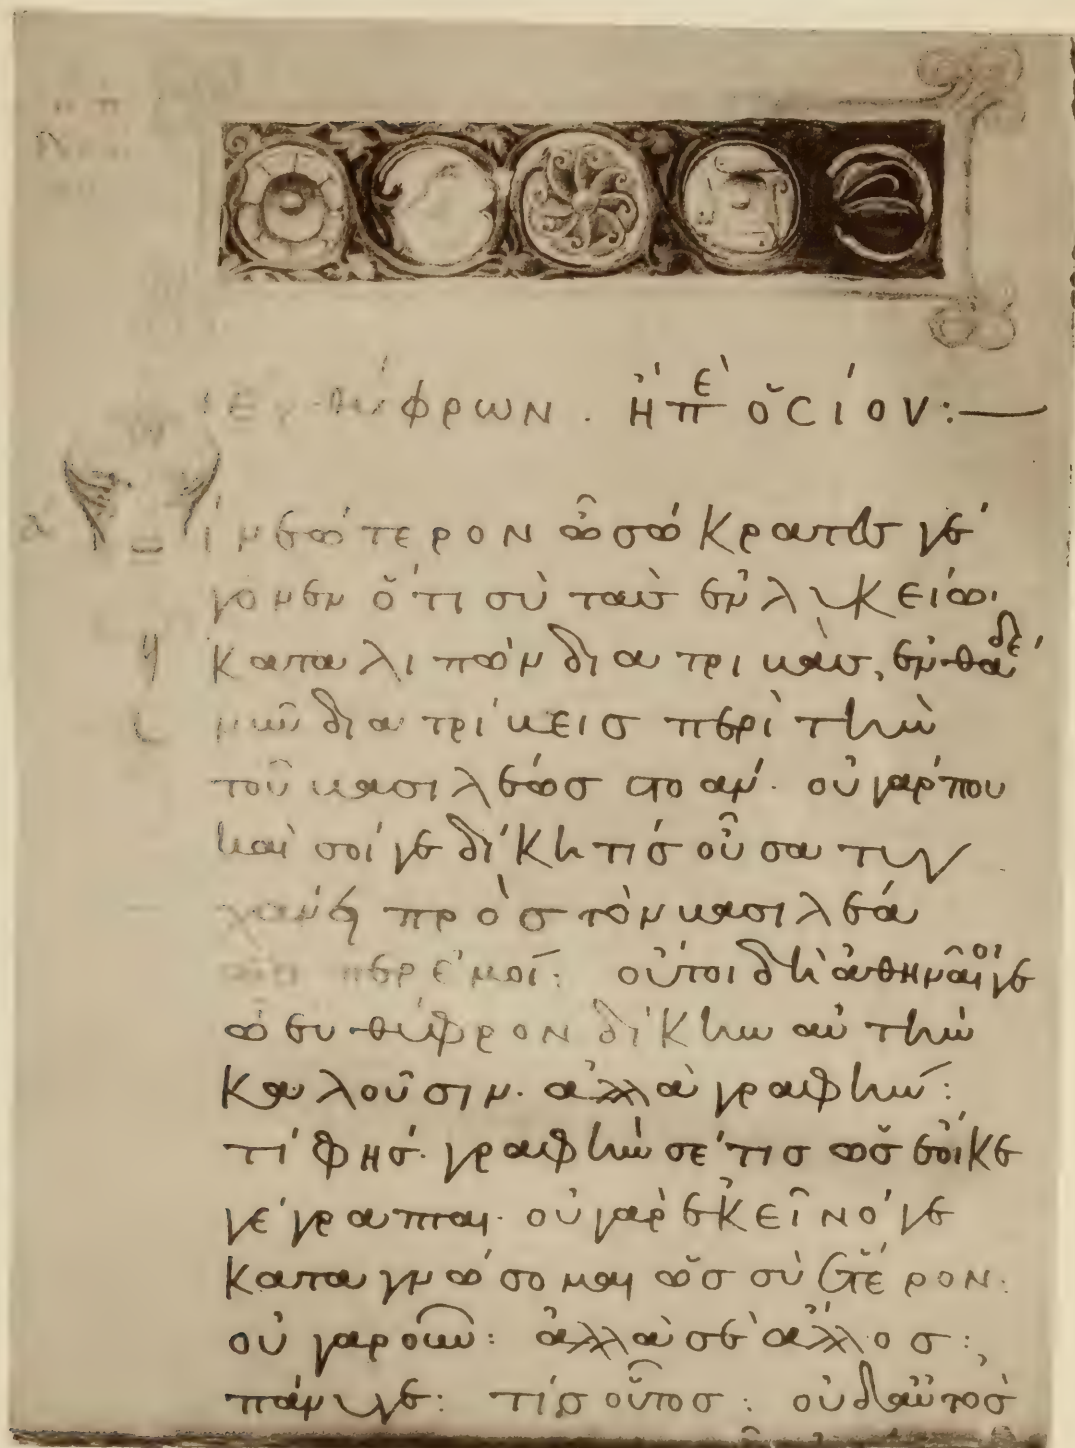 εὐθύφρων. ἢ πε ὁσίου:—
Τί νεώτερον ὦ σώκρατες γέ
γονεν ὅτι σὺ τὰς ἐν λυκείω
καταλιπὼν διατριβὰς, ἐνθάδε
νῦν διατρίβεις περὶ τὴν
τοῦ βασιλέως στοάν. οὐ γάρ που
καὶ σοί γε δίκη τίς οὖσα τυγ
χάνει πρὸς τὸν βασιλέα
ὥσπερ ἐμοί: οὔτοι δὴ ἀθηναῖοί γε
ὦ εὐθύφρον δίκην αὐτὴν
καλοῦσιν. ἀλλὰ γραφήν:
τί φήσ. γραφὴν σέ τις ὡς ἔοικε
γέγραπται. οὐ γὰρ ἐκεῖνό γε
καταγνώσομαι ὡς σὺ ἕτερον.
οὐ γὰρ οὖν: ἀλλὰ σὲ ἄλλος:
πάνυ γε: τίς οὗτος: οὐδ' αὐτὸς